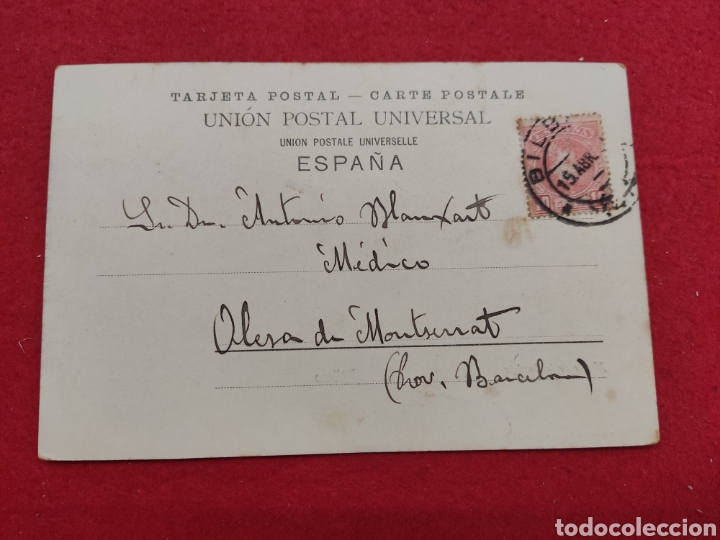 TARJETA POSTAL — CARTE POSTALE
UNIÓN POSTAL UNIVERSAL
UNION POSTALE UNIVERSELLE
ESPAÑA
BILB
15 ABR
Sr. Dn. Antonio Blanxart
Médico
Olesa de Montserrat
(Prov. Barcelona)
todocoleccion